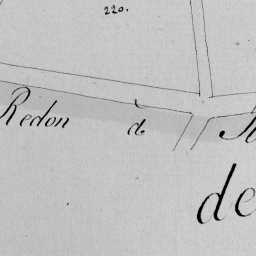 220.
Redon de
de